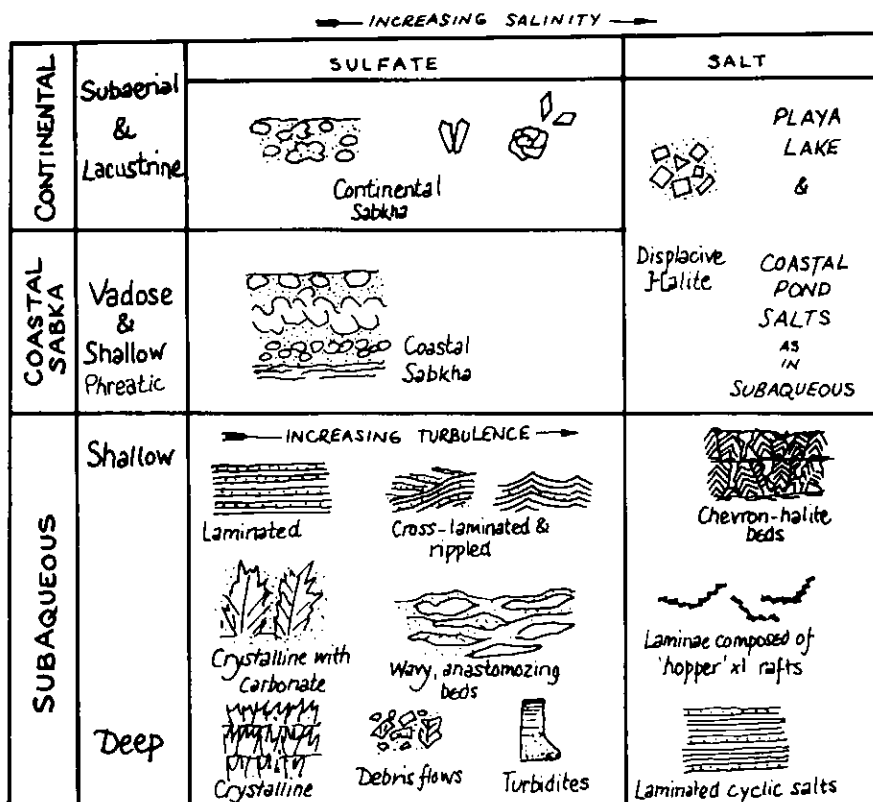 INCREASING SALINITY
SULFATE
SALT
CONTINENTAL
Subaerial
&
Lacustrine
Continental
Sabkha
PLAYA
LAKE
&
COASTAL
SABKA
Vadose
&
Shallow
Phreatic
Coastal
Sabkha
Displacive
Halite
COASTAL
POND
SALTS
AS
IN
SUBAQUEOUS
SUBAQUEOUS
Shallow
INCREASING TURBULENCE
Laminated
Cross-laminated &
rippled
Chevron-halite
beds
Crystalline with
Carbonate
Wavy, anastomozing
beds
Laminae composed of
'hopper' xl rafts
Deep
Crystalline
Debris flows
Turbidites
Laminated cyclic salts